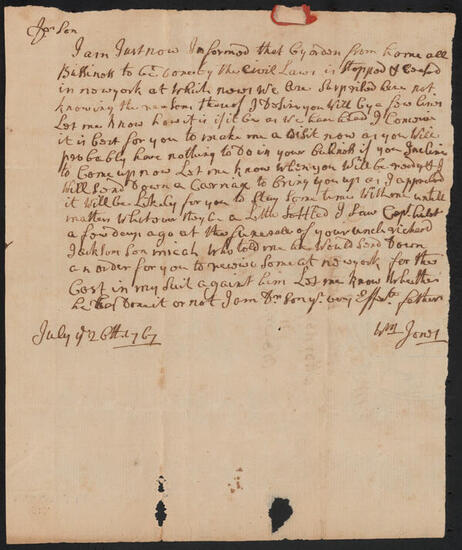 Dr Son
I am Just now Informed that by orders from home all
Bussiness to be done by the Civil Laws is Stopped & Ceased
in new york at Which news We are Surprised but not
knowing the reasons thereof I Desire you Will by a few lines
Let me Know how it is if it be as We have heard I Conceive
it is best for you to make me a Visit now as you Will
probably have nothing to Do in your business if you Incline
to Come up now Let me Know when you Will be ready & I
Will Send Down a Carriage to bring you up as I apprehend
it Will be Likely for you to Stay Some time With me untill
matters Whatever they be a Little Settled I Saw Capt
a few Days ago at the funerale of your uncle Richard
Jackson Son micah Who told me he Would Send Down
an order for you to receive Some at new york for the
Cost in my Suit against him Let me Know Whether
he has Done it or not I am Dr Son yr very Affectt father
July ye 26th 1767
Wm Jones